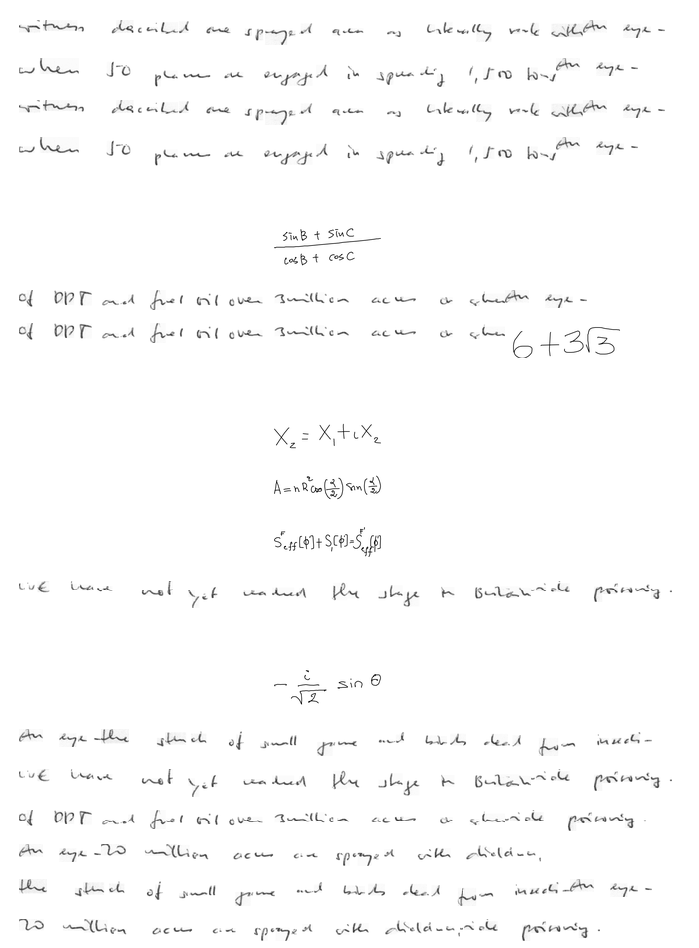 witness described one sprayed area as literally reek with An eye-
when 50 planes are engaged in spreading 1,500 tons An eye-
witness described one sprayed area as literally reek with An eye-
when 50 planes are engaged in spreading 1,500 tons An eye-
\frac{sin B + sin C}{cos B + cos C}
of DDT and fuel oil over 3 million acres a when An eye-
of DDT and fuel oil over 3 million acres a when 6 + 3\sqrt{3}
X_2 = X_1 + iX_2
A = nR^2 cos(\frac{\alpha}{2}) sin(\frac{\alpha}{2})
S^F_{eff}[\phi] + S_1[\phi] = S^{F'}_{eff}[\phi]
we have not yet reached the stage in Britain-ide poisoning.
- \frac{i}{\sqrt{2}} sin \theta
An eye-the stench of small game and birds dead from insecti-
we have not yet reached the stage in Britain-ide poisoning.
of DDT and fuel oil over 3 million acres a when-ide poisoning.
An eye-20 million acres are sprayed with dieldrin,
the stench of small game and birds dead from insecti-An eye-
20 million acres are sprayed with dieldrin, ide poisoning.